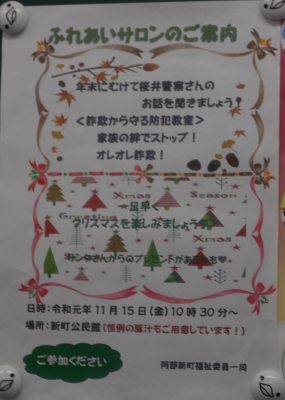 ふれあいサロンのご案内
年末にむけて桜井警察さんの
お話を聞きましょう!
<詐欺から守る防犯教室>
家族の絆でストップ!
オレオレ詐欺!
Xmas Season
一足早く
Greeting
クリスマスを楽しみましょう!
Xmas
サンタさんからのプレゼントがあるかも
日時:令和元年11月15日(金)10時30分~
場所:新町公民館(恒例の豚汁もご用意しています!)
ご参加ください
阿部新町福祉委員一同